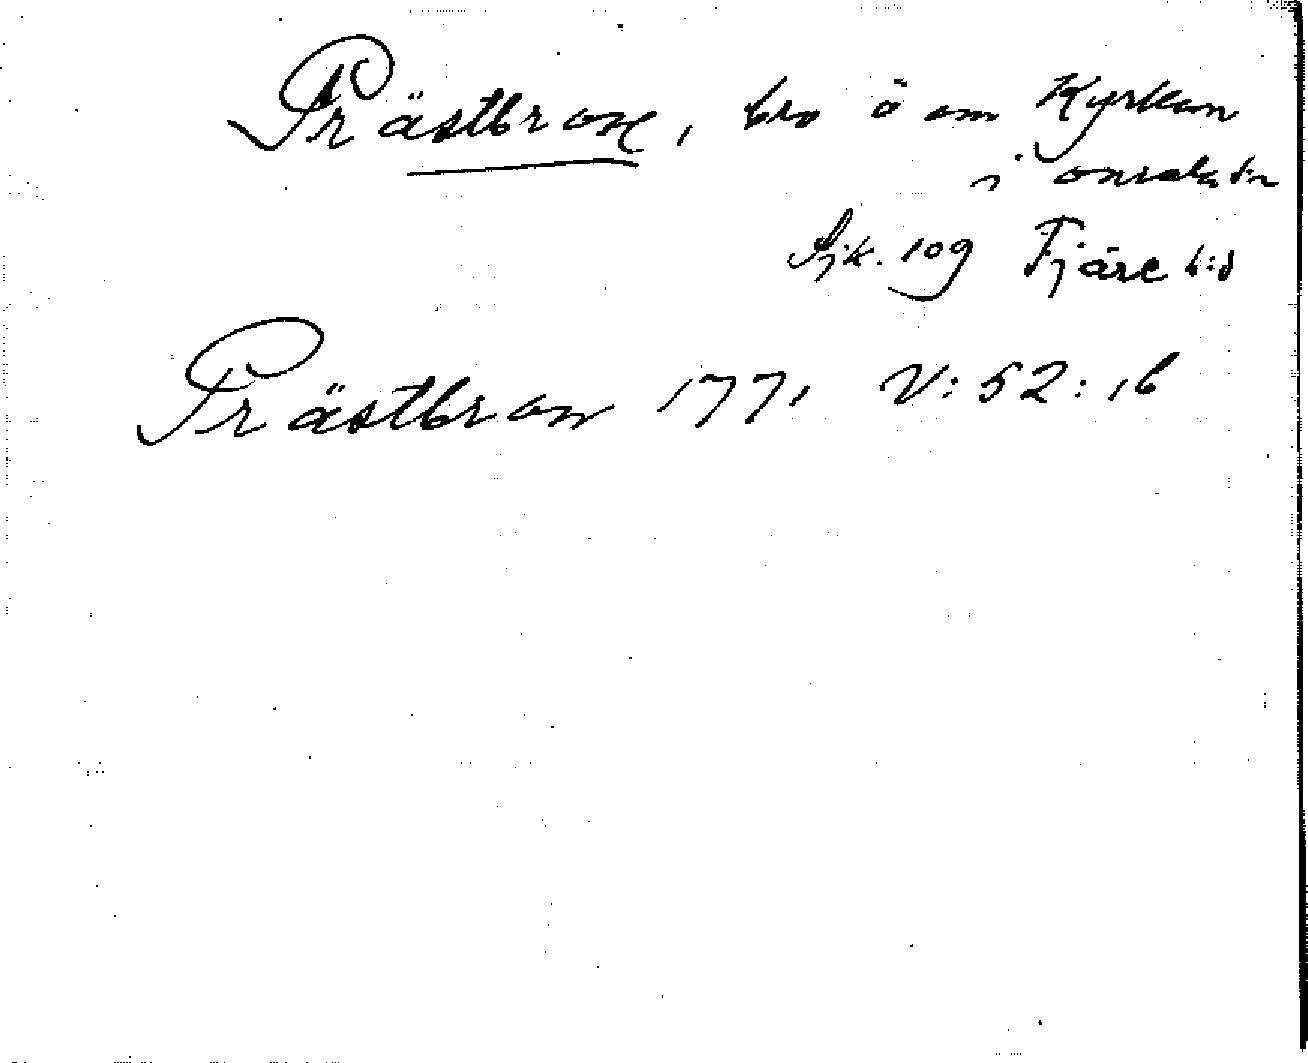 Prästbron, bro ö om Kyrkan
i Onsala sn
Sjk. 109 Fjäre h:d
Prästbron 1771 V:52:16